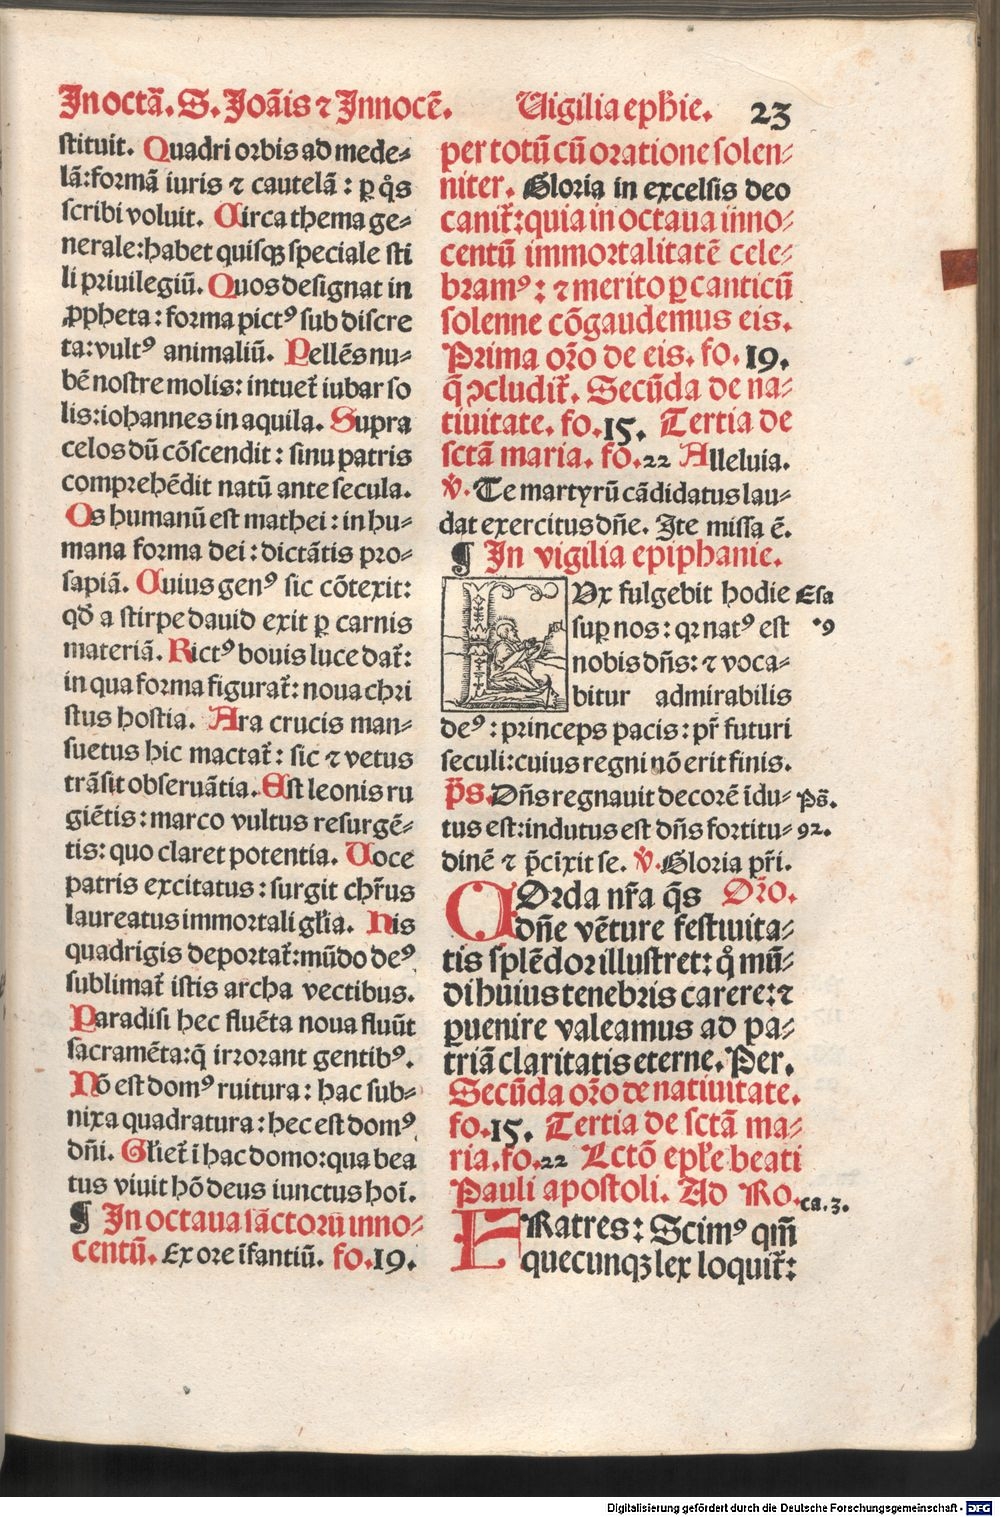 In octā. S. Joāis ⁊ Innocē.
Uigilia ephīe. 23
stituit. Quadri orbis ad mede⸗
lā: formā iuris ⁊ cautelā: ꝑ q̊s
scribi voluit. Circa thema ge⸗
nerale: habet quisqꝫ speciale sti
li priuilegiū. Quos designat in
ꝓpheta: forma pictꝰ sub discre
ta: vultꝰ animaliū. Pellēs nu⸗
bē nostre molis: intuet̄ iubar so
lis: iohannes in aquila. Supra
celos dū cōscendit: sinu patris
comprehēdit natū ante secula.
Os humanū est mathei: in hu⸗
mana forma dei: dictātis pro⸗
sapiā. Cuius genꝰ sic cōtexit:
qd̄ a stirpe dauid exit ꝑ carnis
materiā. Rictꝰ bouis luce dat̄:
in qua forma figurat̄: noua chri
stus hostia. Ara crucis man⸗
suetus hic mactat̄: sic ⁊ vetus
trāsit obseruātia. Est leonis ru
giētis: marco vultus resurgē⸗
tis: quo claret potentia. Uoce
patris excitatus: surgit chr̄us
laureatus immortali gl̄ia. His
quadrigis deportat̄: mūdo deꝰ
sublimat̄ istis archa vectibus.
Paradisi hec fluēta noua fluūt
sacramēta: q̄ irrorant gentibꝰ.
Nō est domꝰ ruitura: hac sub⸗
nixa quadratura: hec est domꝰ
dn̄i. Gl̄iet̄ ī hac domo: qua bea
tus viuit hō deus iunctus hoī.
¶ In octaua sāctorū inno⸗
centū. Ex ore īfantiū. fo. 19.
per totū cū oratione solen⸗
niter. Gloria in excelsis deo
canit̄: quia in octaua inno⸗
centū immortalitatē cele⸗
bramꝰ: ⁊ merito ꝑ canticū
solenne cōgaudemus eis.
Prima or̄o de eis. fo. 19.
q̄ ꝯcludit̄. Secūda de na⸗
tiuitate. fo. 15. Tertia de
sctā maria. fo. 22 Alleluia.
V̄. Te martyrū cādidatus lau⸗
dat exercitus dn̄e. Ite missa ē.
¶ In vigilia epiphanie.
LUx fulgebit hodie Esa
suꝑ nos: qꝛ natꝰ est .9
nobis dn̄s: ⁊ voca⸗
bitur admirabilis
deꝰ: princeps pacis: pr̄ futuri
seculi: cuius regni nō erit finis.
p̄s. Dn̄s regnauit decorē īdu⸗ Ps̄.
tus est: indutus est dn̄s fortitu⸗ 92.
dinē ⁊ p̄cīxit se. V̄. Gloria pr̄i.
COrda nr̄a q̄s Or̄o.
dn̄e vēture festiuita⸗
tis splēdor illustret: q̊ mū⸗
di huius tenebris carere: ⁊
ꝑuenire valeamus ad pa⸗
triā claritatis eterne. Per.
Secūda or̄o de natiuitate.
fo. 15. Tertia de sctā ma⸗
ria. fo. 22 Lctō epl̄e beati
Pauli apostoli. Ad Ro. ca. 3.
FRatres: Scimꝰ qm̄
quecunqꝫ lex loquit̄:
Digitalisierung gefördert durch die Deutsche Forschungsgemeinschaft - DFG